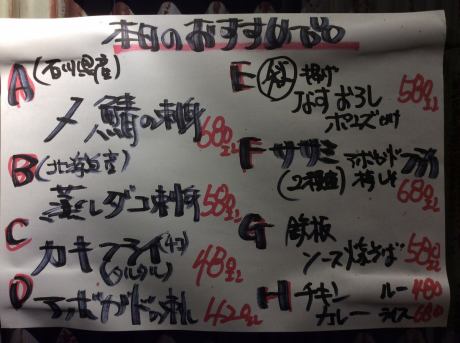 本日のおすすめで
A (石川県産)
〆鯖の刺身 680
B (北海道産)
蒸しダコ刺身 580
C カキフライ(4コ)
(タルタル) 480
D アボガドの刺し 420
E 揚げ
なすおろし
ポン酢 580
F ササミ
(2種盛) 梅しそ 680
G 鉄板
ソース焼そば 580
H チキン
カレー
ルー 480
ライス 680